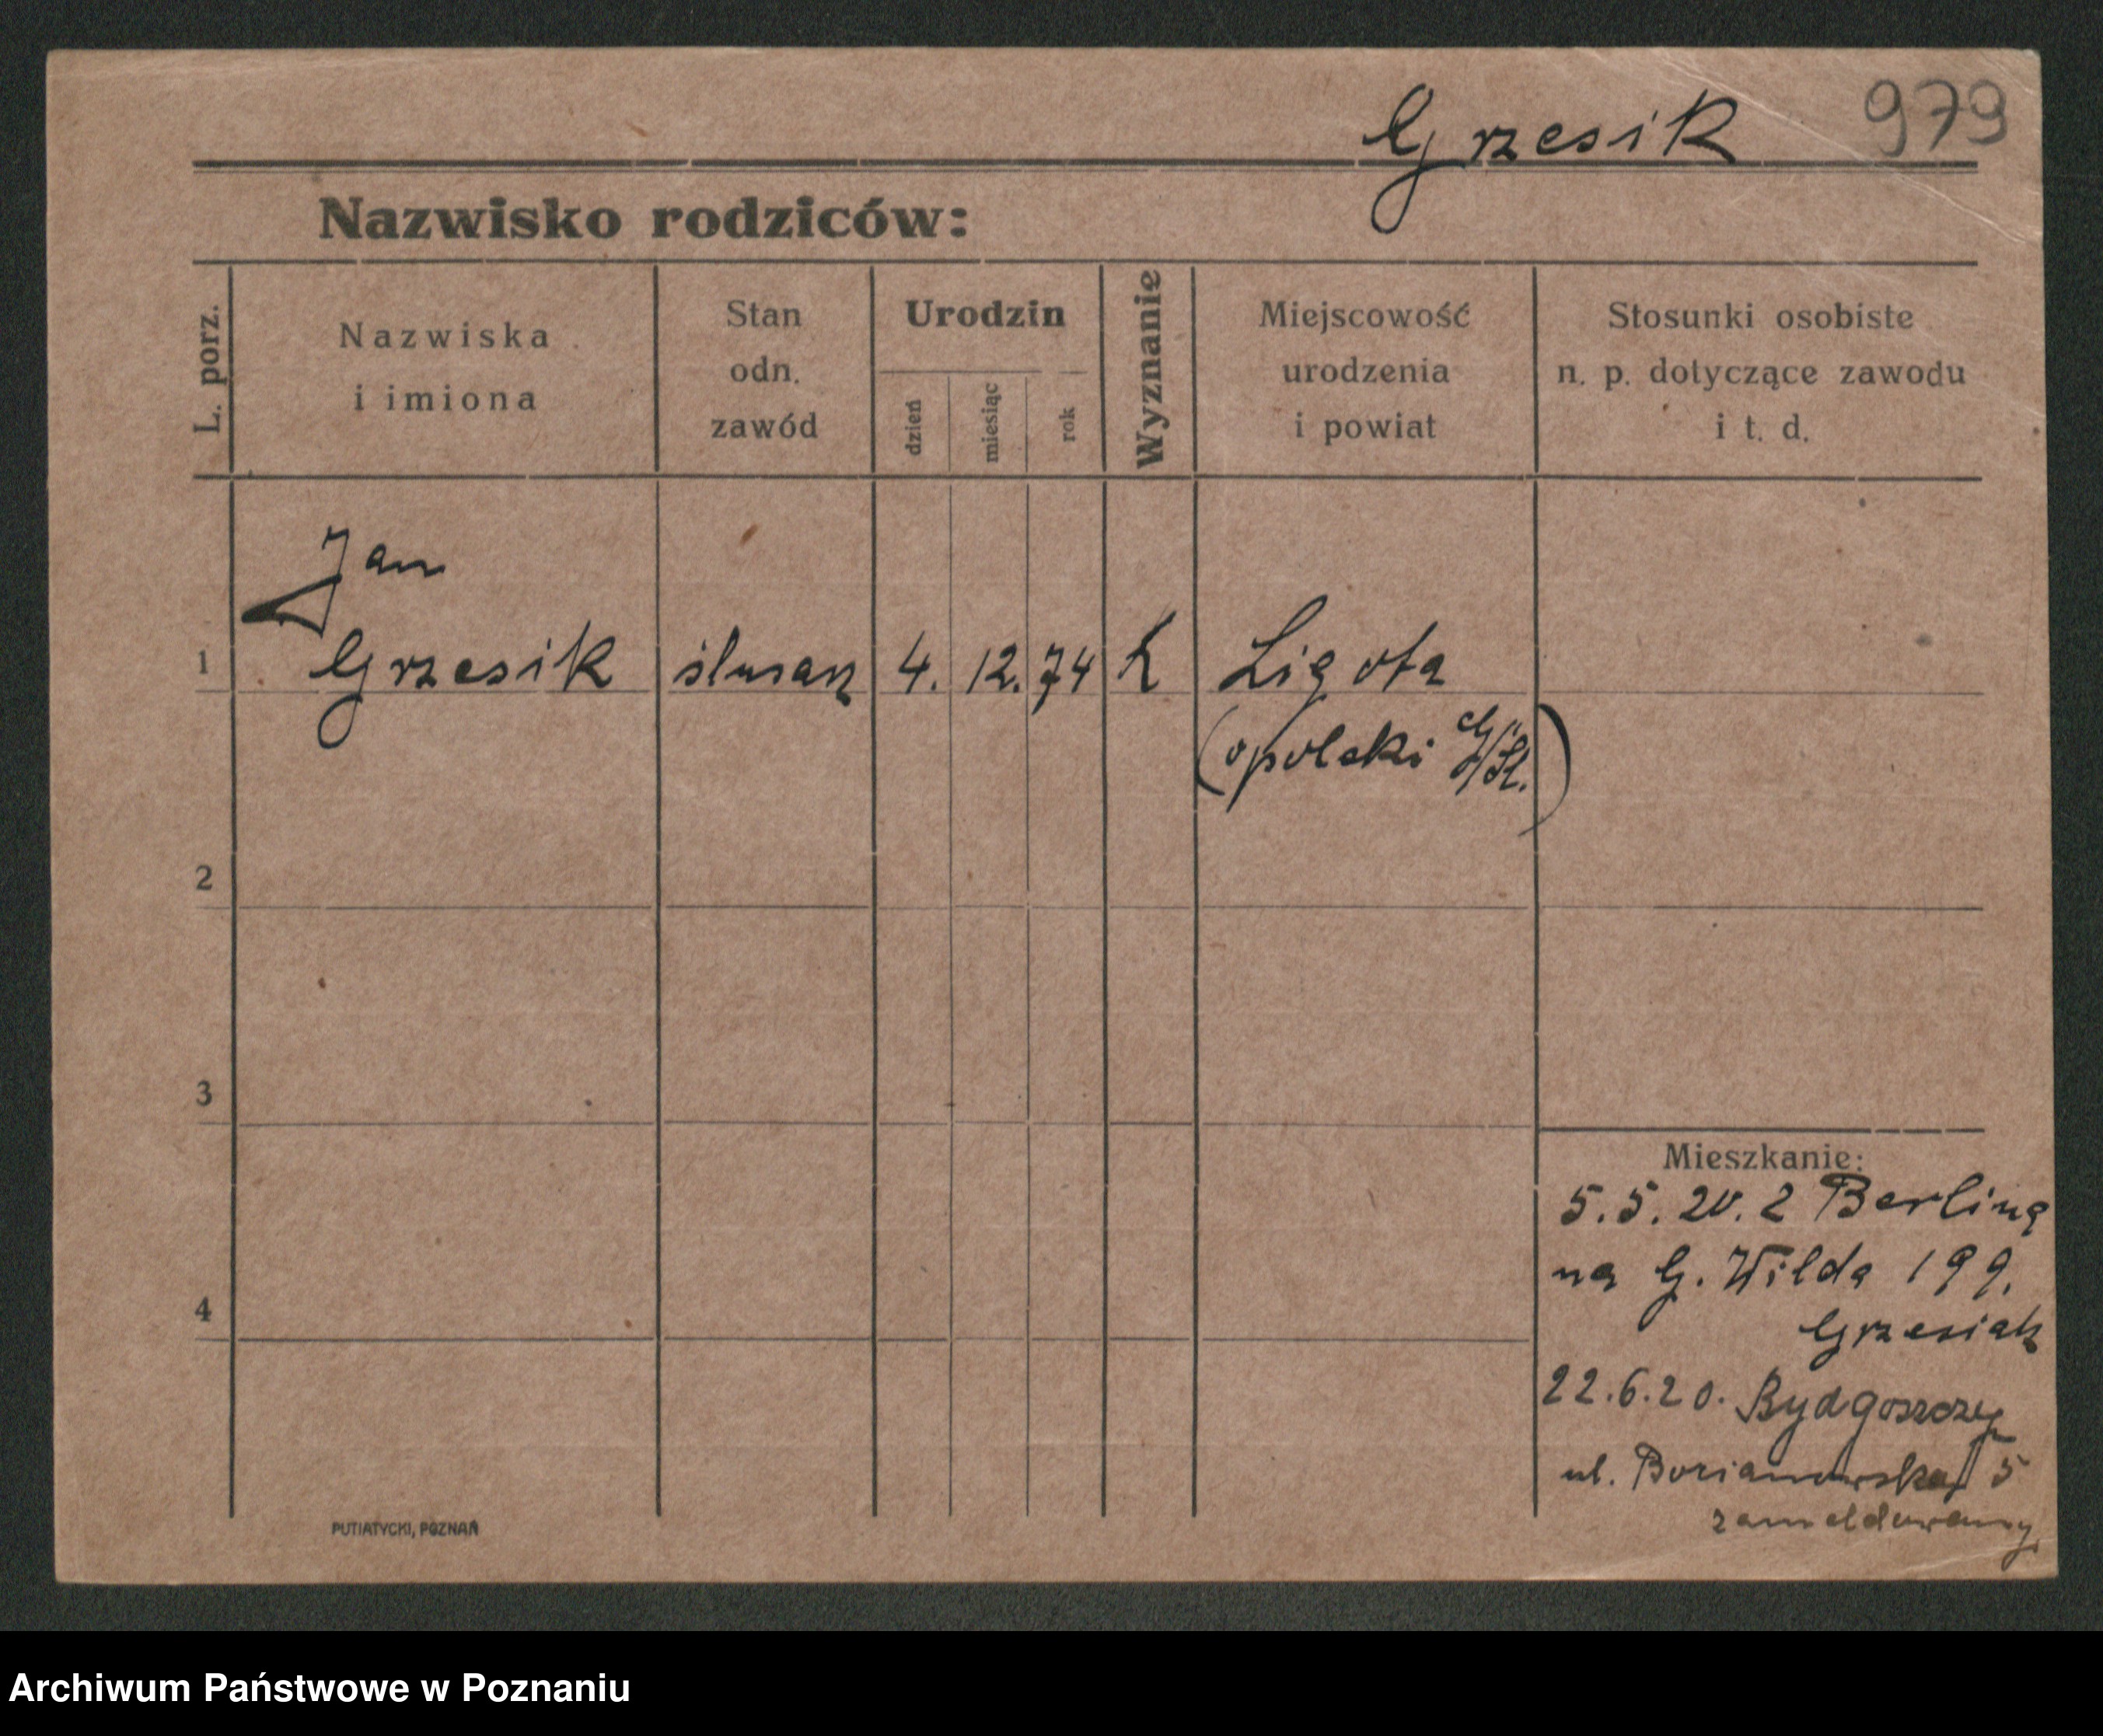 Grzesik 979
Nazwisko rodziców:
L. porz.
Nazwiska
i imiona
Stan
odn.
zawód
Urodzin
dzień
miesiąc
rok
Wyznanie
Miejscowość
urodzenia
i powiat
Stosunki osobiste
n. p. dotyczące zawodu
i t. d.
Jan
1 Grzesik ślusarz 4. 12. 74 k Ligota
(opolski G/Śl.)
2
3
4
Mieszkanie:
5.5.20. z Berlina
na G. Wilda 199.
Grzesiak
22.6.20. Bydgoszczy
ul. 5
zameldowany
PUTIATYCKI, POZNAŃ
Archiwum Państwowe w Poznaniu